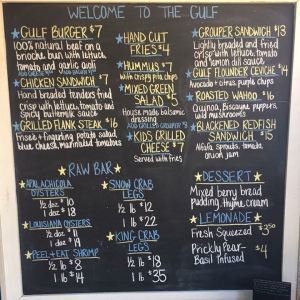 WELCOME TO THE GULF
GULF BURGER $7
100% natural beef on a
brioche bun with lettuce,
tomato and garlic aioli
CHICKEN SANDWICH $7
Hand breaded tenders fried
crisp with lettuce, tomato and
spicy buttermilk sauce
GRILLED FLANK STEAK $16
Frisee + fingerling potato salad,
blue cheese, marinated tomatoes
HAND CUT
FRIES $4
HUMMUS $7
With crispy pita chips
MIXED GREEN
SALAD $5
House made balsamic
dressing
KIDS GRILLED
CHEESE $7
Served with Fries
GROUPER SANDWICH $13
Lightly breaded and fried
Crisp with lettuce, tomato
and lemon dill sauce
GULF FLOUNDER CEVICHE $14
Avocado + citrus, purple chips
ROASTED WAHOO $16
Quinoa, Biscayne peppers,
wild mushrooms
BLACKENED REDFISH
SANDWICH $15
Alfalfa sprouts, tomato,
onion jam
RAW BAR
APALACHICOLA
OYSTERS
1/2 doz $10
1 doz $18
LOUISIANA OYSTERS
1/2 doz $8
1 doz $14
PEEL + EAT SHRIMP
1/2 lb $8
1 lb $14
SNOW CRAB
LEGS
1/2 lb $12
1 lb $22
KING CRAB
LEGS
1/2 lb $18
1 lb $35
DESSERT
Mixed berry bread
pudding, thyme cream
LEMONADE
Fresh Squeezed $3.50
Prickly Pear-
Basil Infused $4